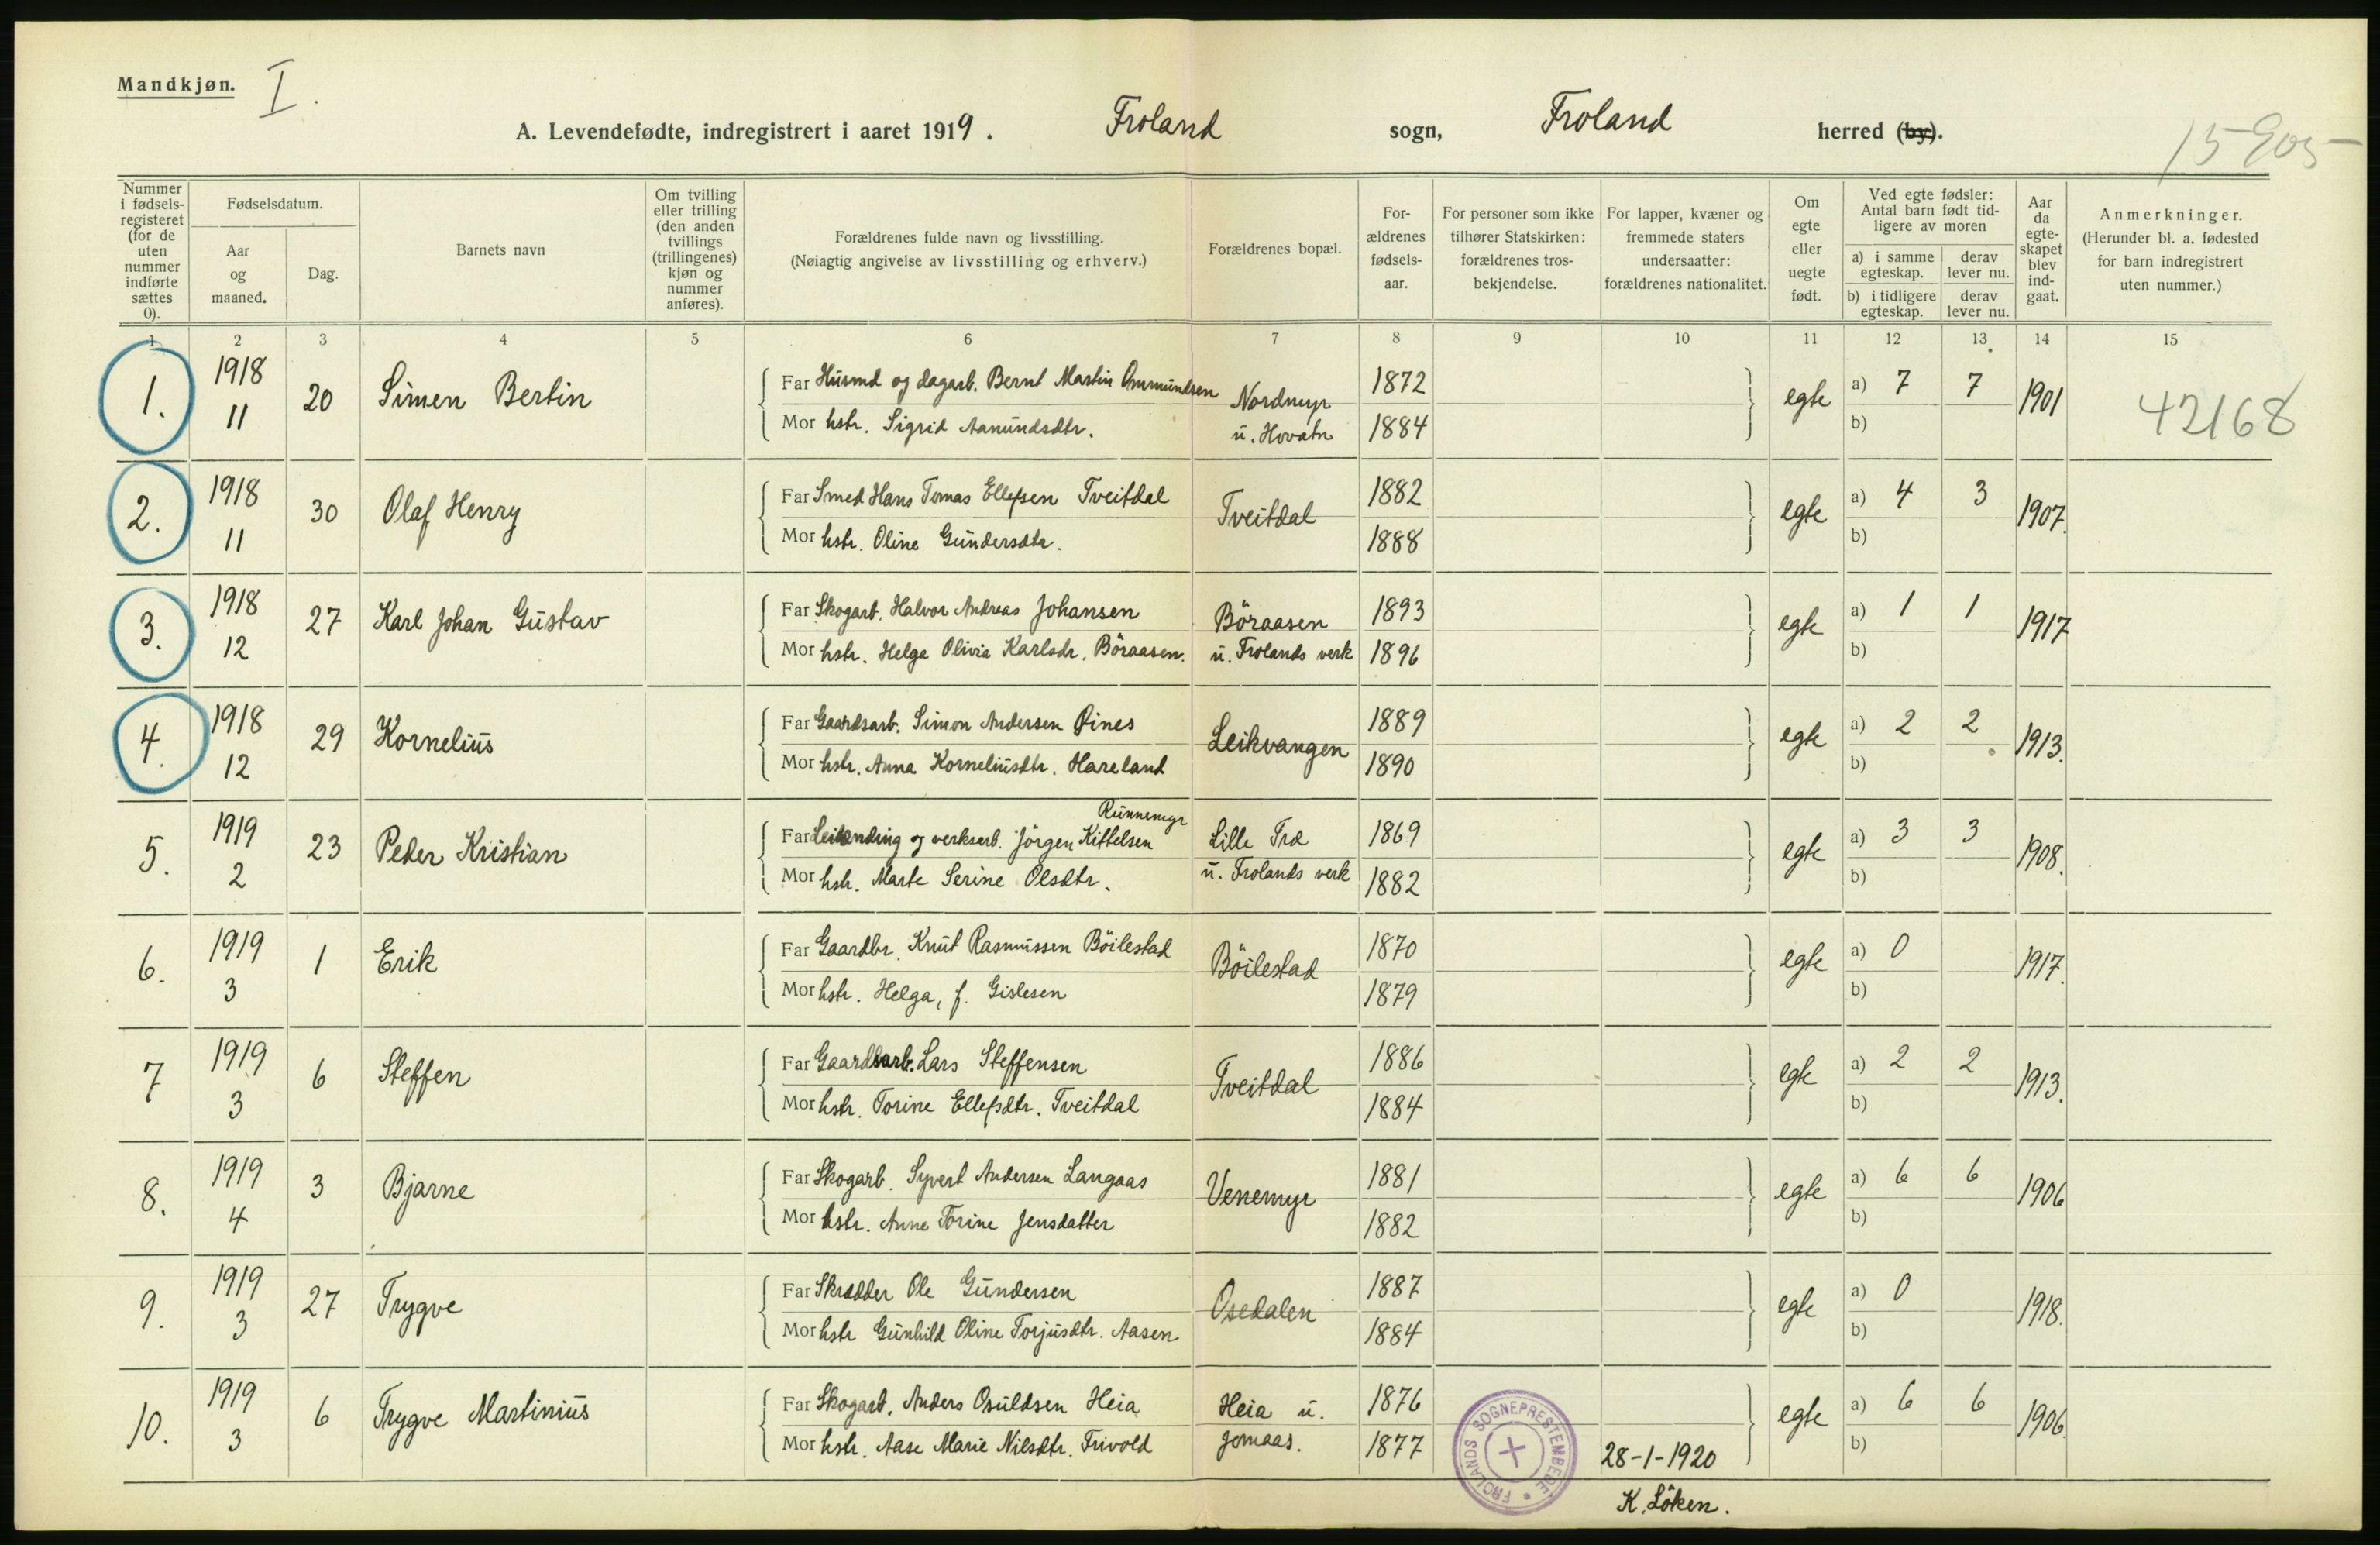 Mandkjøn. I.
A. Levendefødte, indregistrert i aaret 1919. Froland sogn, Froland herred (by).
15905
Nummer i fødselsregisteret (for de uten nummer indførte sættes 0).
Fødselsdatum.
Aar og maaned.
Dag.
Barnets navn
Om tvilling eller trilling (den anden tvillings (trillingenes) kjøn og nummer anføres).
Forældrenes fulde navn og livsstilling.
(Nøiagtig angivelse av livsstilling og erhverv.)
Forældrenes bopæl.
Forældrenes fødselsaar.
For personer som ikke tilhører Statskirken: forældrenes trosbekjendelse.
For lapper, kvæner og fremmede staters undersaatter: forældrenes nationalitet.
Om egte eller uegte født.
Ved egte fødsler: Antal barn født tidligere av moren
a) i samme egteskap. derav lever nu.
b) i tidligere egteskap. derav lever nu.
Aar da egteskapet blev indgaat.
Anmerkninger.
(Herunder bl. a. fødested for barn indregistrert uten nummer.)
1 2 3 4 5 6 7 8 9 10 11 12 13 14 15
1. 1918 11 20 Simen Bertin
Far Husmd og dagarb. Bernt Martin Ommundsen Nordmyr 1872 egte a) 7 7 1901 42168
Mor hstr. Sigrid Aanundsdtr. u. Hovatn 1884 b)
2. 1918 11 30 Olaf Henry
Far Smed Hans Tomas Ellefsen Tveitdal Tveitdal 1882 egte a) 4 3 1907.
Mor hstr. Oline Gundersdtr. 1888 b)
3. 1918 12 27 Karl Johan Gustav
Far Skogarb. Halvor Andreas Johansen Böraasen 1893 egte a) 1 1 1917
Mor hstr. Helga Olivia Karlsdr. Böraasen. u. Frolands verk 1896 b)
4. 1918 12 29 Kornelius
Far Gaardsarb. Simon Andersen Øines Leikvangen 1889 egte a) 2 2 1913.
Mor hstr. Anna Korneliusdtr. Hareland 1890 b)
5. 1919 2 23 Peder Kristian
Runnemyr
Far Leilending og verksarb. Jörgen Kittelsen Lille Træ 1869 egte a) 3 3 1908.
Mor hstr. Marte Serine Olsdtr. u. Frolands verk 1882 b)
6. 1919 3 1 Erik
Far Gaardbr. Knut Rasmussen Böilestad Böilestad 1870 egte a) 0 1917.
Mor hstr. Helga, f. Gislesen 1879 b)
7 1919 3 6 Steffen
Far Gaardsarb. Lars Steffensen Tveitdal 1886 egte a) 2 2 1913.
Mor hstr. Torine Ellefsdtr. Tveitdal 1884 b)
8. 1919 4 3 Bjarne
Far Skogarb. Syvert Andersen Langaas Venemyr 1881 egte a) 6 6 1906
Mor hstr. Anne Torine Jensdatter 1882 b)
9. 1919 3 27 Trygve
Far Skrædder Ole Gundersen Osedalen 1887 egte a) 0 1918.
Mor hstr Gunhild Oline Torjusdtr. Aasen 1884 b)
10. 1919 3 6 Trygve Martinius
Far Skogarb. Anders Osuldsen Heia Heia u. 1876 egte a) 6 6 1906.
Mor hstr. Aase Marie Nilsdtr. Frivold Jomaas. 1877 b)
FROLANDS SOGNEPRESTEMBEDE
28-1-1920
K. Löken.